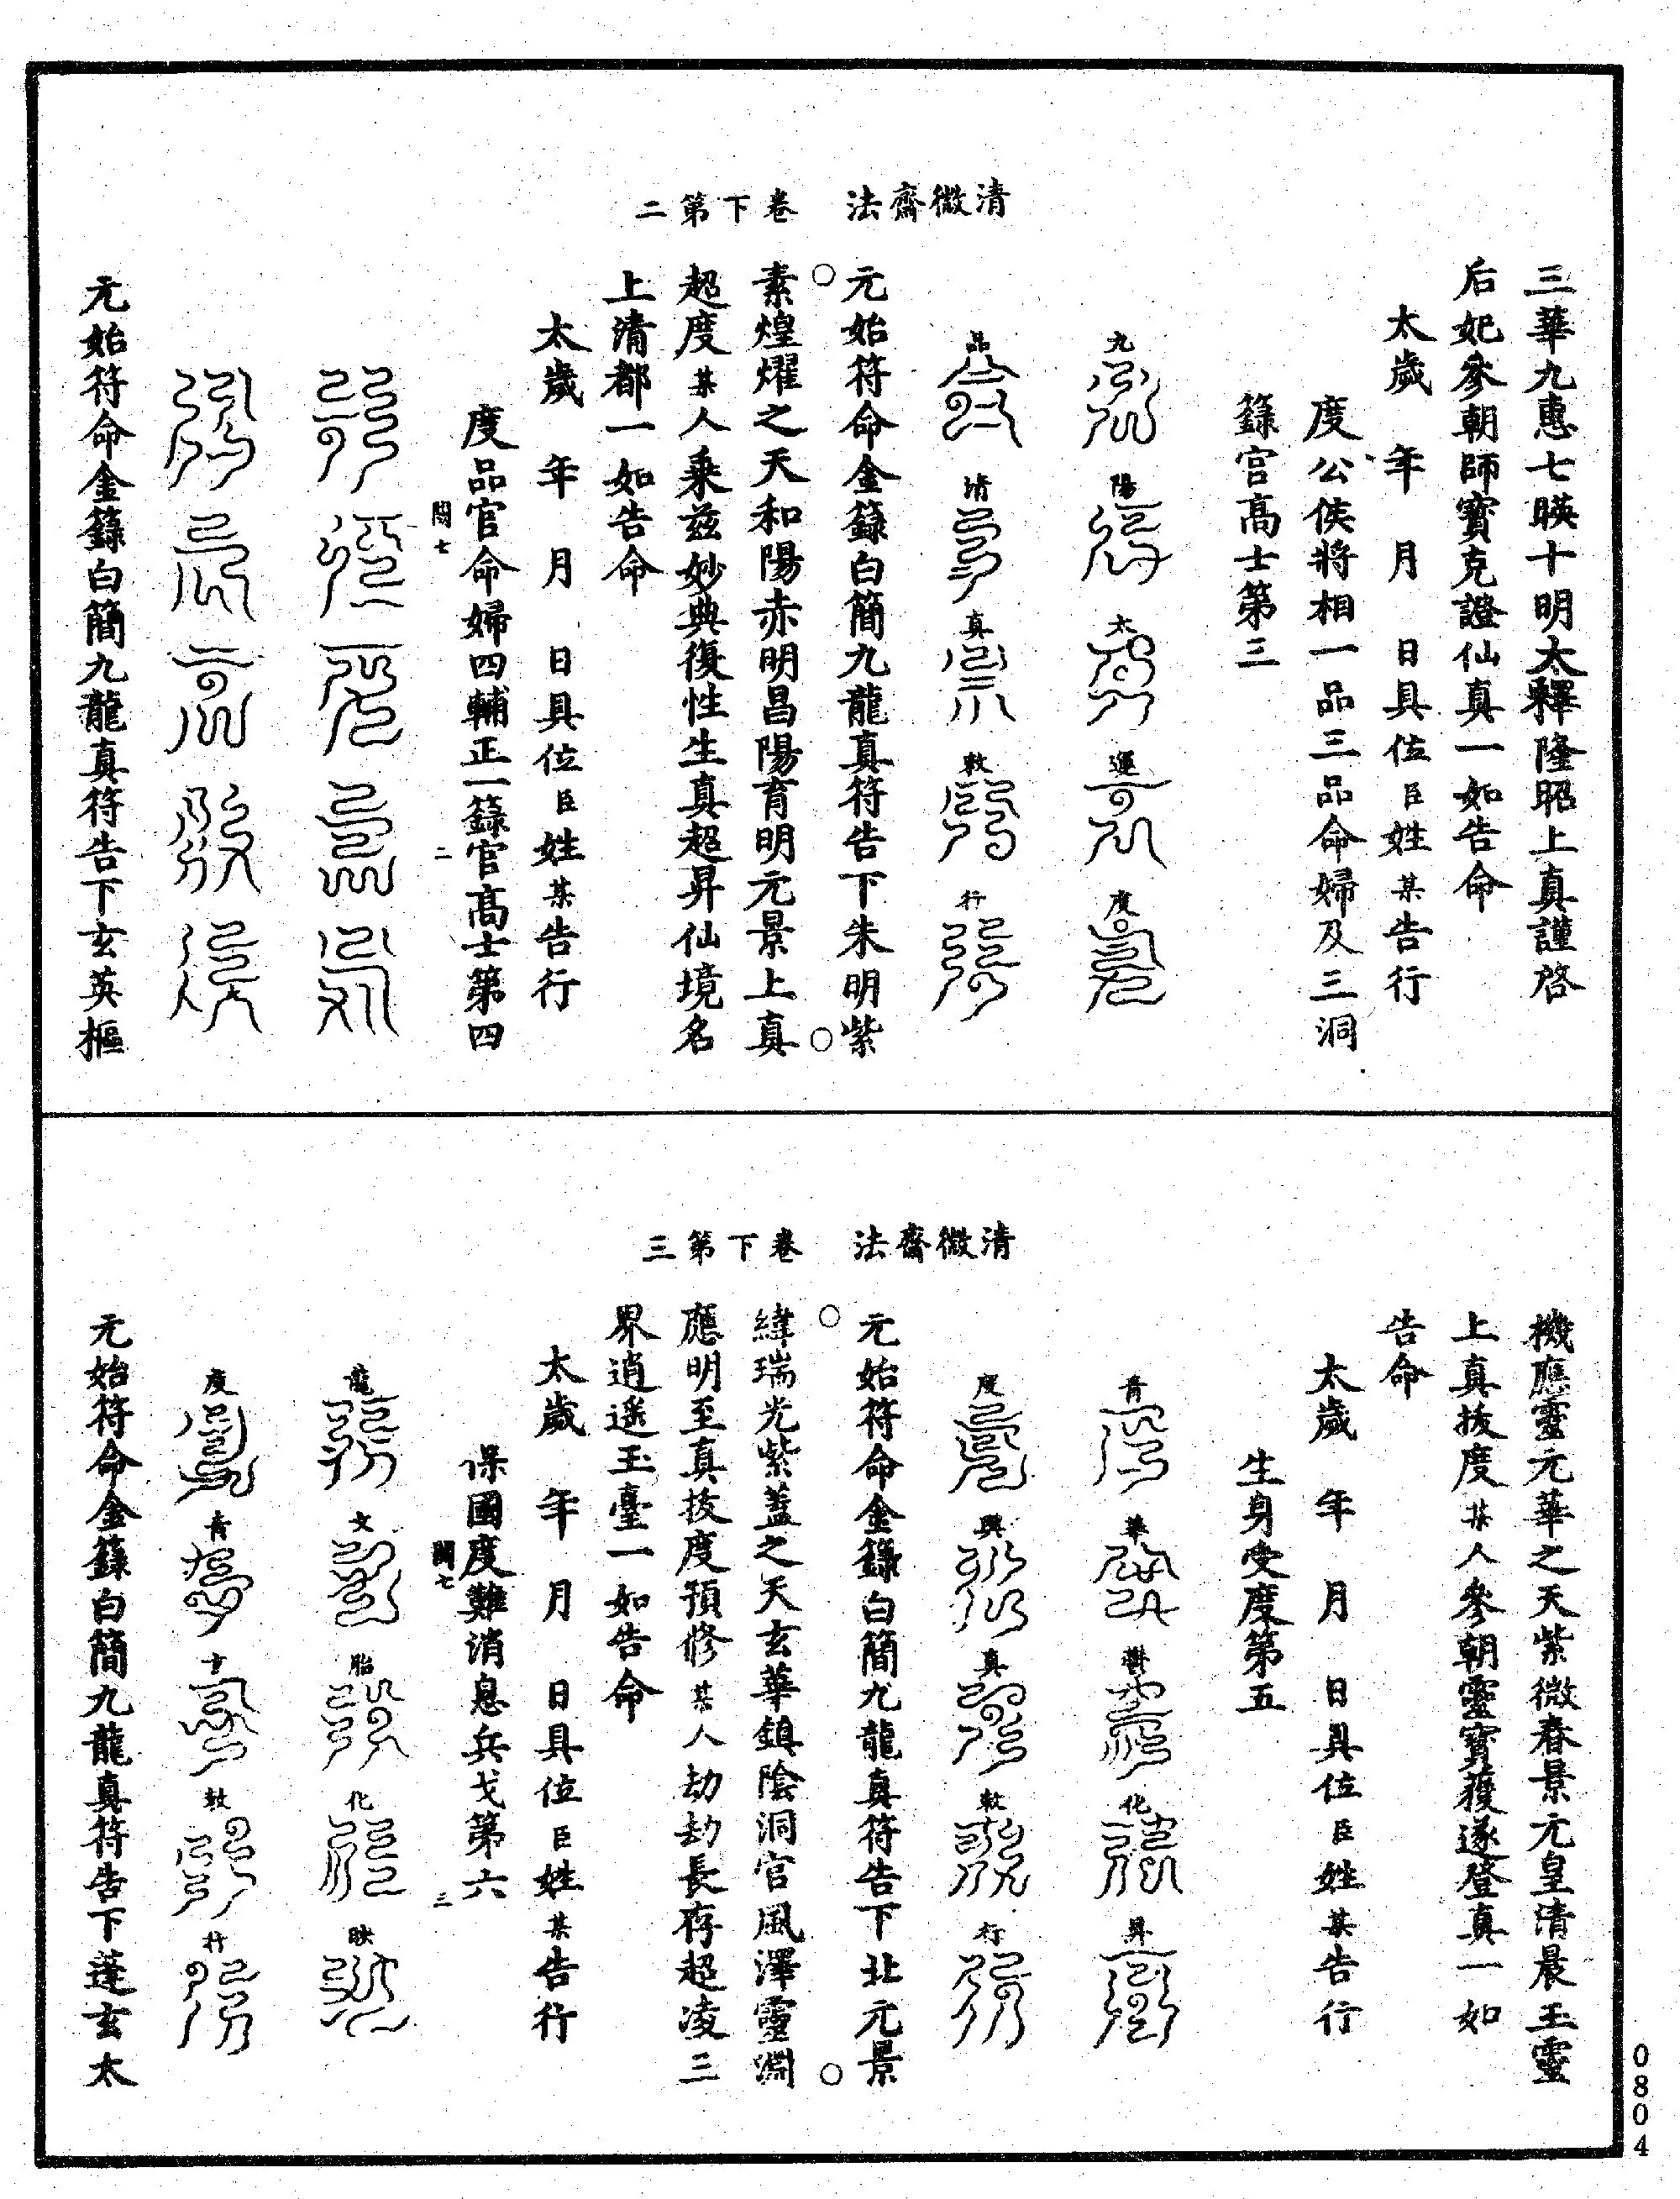 三華九惠七暎十明太釋隆昭上真謹啓
后妃參朝師寶克證仙真一如告命
太歲　年　月　日具位臣姓某告行
度公侯將相一品三品命婦及三洞
籙官高士第三
九　陽　太　運　度
品　清　真　敕　行
元始符命金籙白簡九龍真符告下朱明紫
清微齋法　卷下第二
素煌燿之天和陽赤明昌陽育明元景上真
超度某人乘茲妙典復性生真超昇仙境名
上清都一如告命
太歲　年　月　日具位臣姓某告行
度品官命婦四輔正一籙官高士第四
闕七　二
元始符命金籙白簡九龍真符告下玄英樞
機應靈元華之天紫微春景元皇清晨王靈
上真拔度某人參朝靈寶獲遂登真一如
告命
太歲　年　月　日具位臣姓某告行
生身受度第五
青　華　鬱　化　昇
度　興　真　敕　行
元始符命金籙白簡九龍真符告下北元景
清微齋法　卷下第三
緯瑞光紫蓋之天玄華鎮陰洞官風澤靈淵
應明至真拔度預修某人劫劫長存超凌三
界逍遙玉臺一如告命
太歲　年　月　日具位臣姓某告行
保國度難消息兵戈第六
闕七　三
龍　文　胎　化　映
度　青　十　敕　行
元始符命金籙白簡九龍真符告下蓬玄太
0804